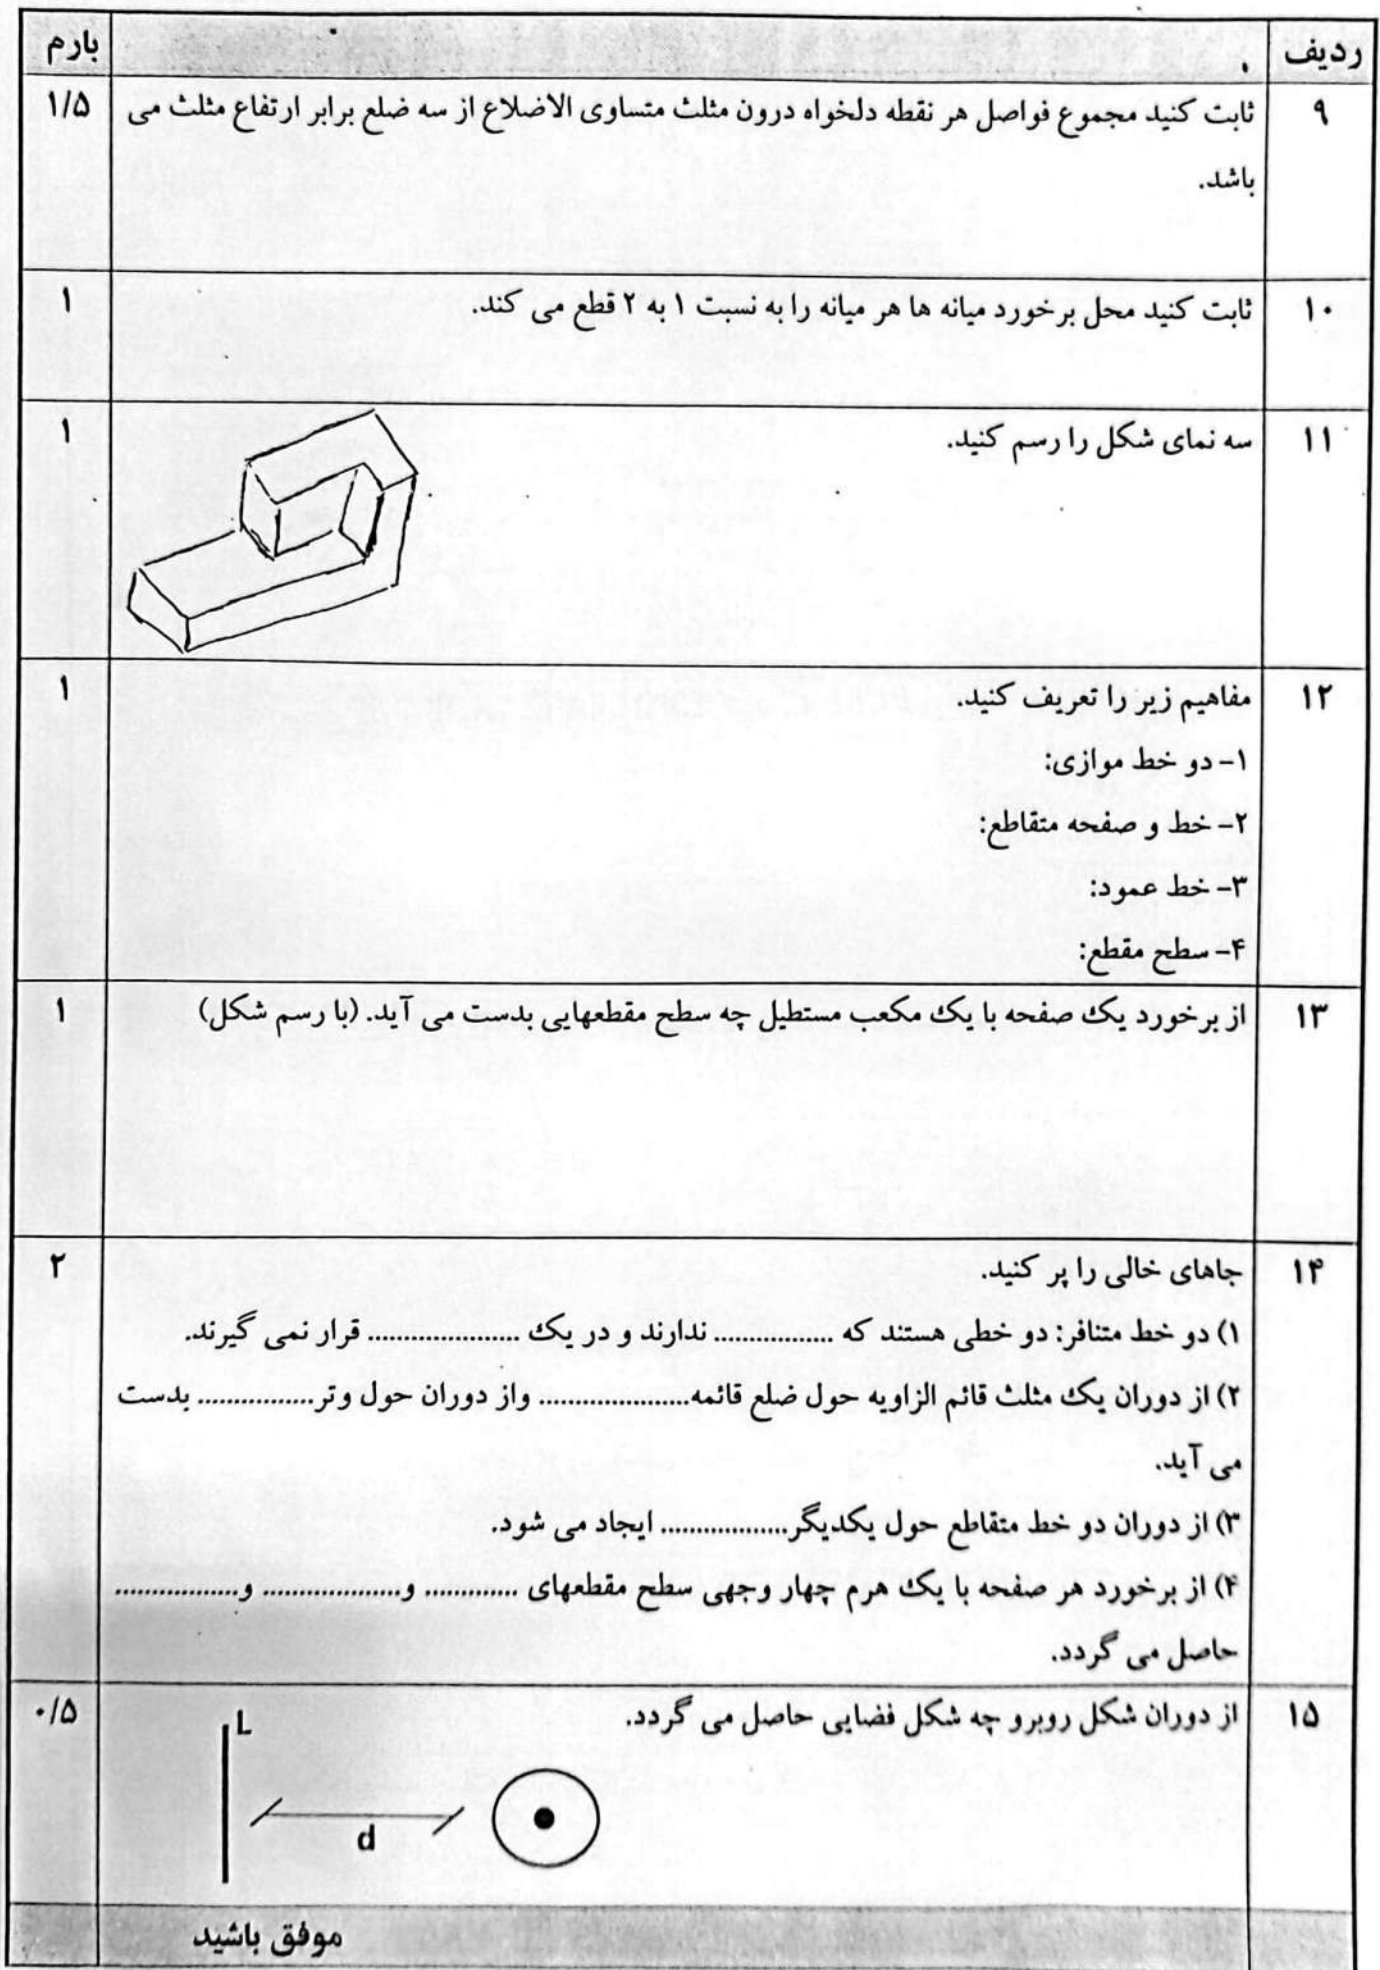 ردیف بارم
۹ ثابت کنید مجموع فواصل هر نقطه دلخواه درون مثلث متساوی الاضلاع از سه ضلع برابر ارتفاع مثلث می ۱/۵
باشد.
۱۰ ثابت کنید محل برخورد میانه ها هر میانه را به نسبت ۱ به ۲ قطع می کند. ۱
۱۱ سه نمای شکل را رسم کنید. ۱
۱۲ مفاهیم زیر را تعریف کنید. ۱
۱- دو خط موازی:
۲- خط و صفحه متقاطع:
۳- خط عمود:
۴- سطح مقطع:
۱۳ از برخورد یک صفحه با یک مکعب مستطیل چه سطح مقطعهایی بدست می آید. (با رسم شکل) ۱
۱۴ جاهای خالی را پر کنید. ۲
۱) دو خط متنافر: دو خطی هستند که ................ ندارند و در یک .................... قرار نمی گیرند.
۲) از دوران یک مثلث قائم الزاویه حول ضلع قائمه.................... واز دوران حول وتر................ بدست
می آید.
۳) از دوران دو خط متقاطع حول یکدیگر................. ایجاد می شود.
۴) از برخورد هر صفحه با یک هرم چهار وجهی سطح مقطعهای ............. و.................. و................
حاصل می گردد.
۱۵ از دوران شکل روبرو چه شکل فضایی حاصل می گردد. ۰/۵
L
d
موفق باشید